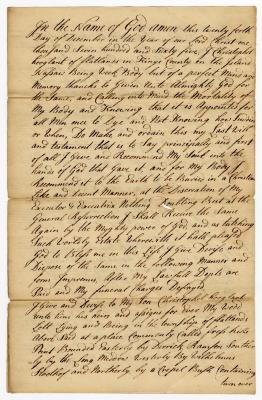 In the Name of God amen this twenty forth
Day of December in the Year of our Lord Christ one
thousand Seven hundred and Sixty five, I Christophel
hoogland of flatlands in Kings County on the Island
Nassau Being Weak Body but of a perfect Mind and
Memory thanks to given unto Almighty God for
the Same, and Calling unto Mind the Mortality of
My Body and Knowing that it is Appointed for
all Men once to Dye and Not Knowing how Sudden
or When, Do Make and ordain this my Last Will
and testament that is to Say principally and first
of all I Give and Recommend My Soul into the
hands of God that Gave it, and for My Body I
Recommend it to the Earth to be Buried in a Christian
Like and decent Manner, at the Discretion of My
Executor & Executrix Nothing Doubting But at the
General Resurrection I Shall Receive the Same
Again by the Mighty power of God and as touching
Such Worldly Estate Wherewith it hath pleased
God to Bless me in this Life I Give Devise and
Dispose of the Same in the following Manner and
form Imprimis, After My Lawfull Depts are
Paid and My funeral Charges Defrayed
I Give and Devise to My Son Christophel hoogland
unto him his heirs and assigns for ever My Wood
Lott Lying and Being in the township of flatlands
Above Said at a place Commonly Called
Bounded Easterly by Derrick Ramsen Souther
ly by the Long Meddow Westerly By Wilhelmus
Stoothof and Northerly by a Cripel Bush Containing
turn over